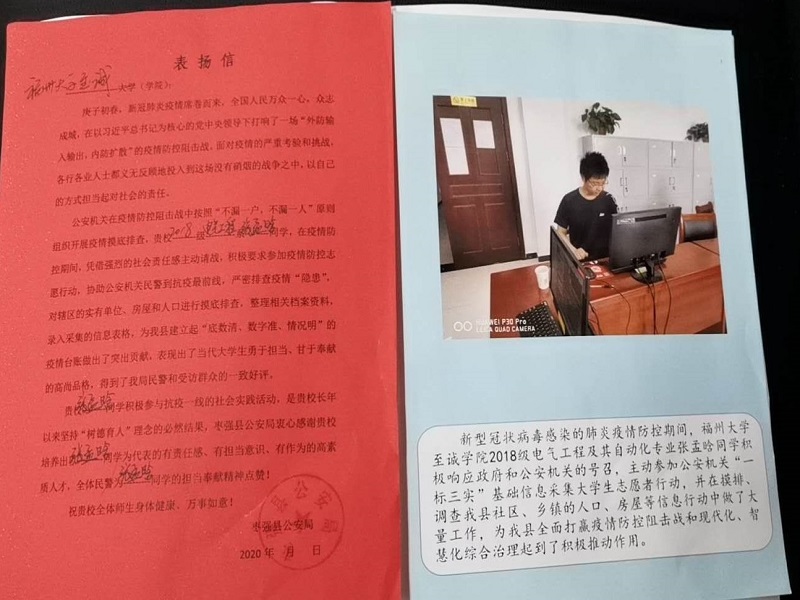 表扬信
福州大学至诚大学（学院）：
庚子初春，新冠肺炎疫情席卷而来，全国人民万众一心、众志
成城，在以习近平总书记为核心的党中央领导下打响了一场“外防输
入输出，内防扩散”的疫情防控阻击战。面对疫情的严重考验和挑战，
各行各业人士都义无反顾地投入到这场没有硝烟的战争之中，以自己
的方式担当起对社会的责任。
公安机关在疫情防控阻击战中按照“不漏一户，不漏一人”原则
组织开展疫情摸底排查，贵校2018级张孟晗同学，在疫情防
控期间，凭借强烈的社会责任感主动请战，积极要求参加疫情防控志
愿行动，协助公安机关民警到抗疫最前线，严密排查疫情“隐患”，
对辖区的实有单位、房屋和人口进行摸底排查，整理相关档案资料，
录入采集的信息表格，为我县建立起“底数清、数字准、情况明”的
疫情台账做出了突出贡献、表现出了当代大学生勇于担当、甘于奉献
的高尚品格，得到了我局民警和受访群众的一致好评。
贵校张孟晗同学积极参与抗疫一线的社会实践活动，是贵校长年
以来坚持“树德育人”理念的必然结果，枣强县公安局衷心感谢贵校
培养出张孟晗同学为代表的有责任感、有担当意识、有作为的高素
质人才、全体民警为张孟晗同学的担当奉献精神点赞！
祝贵校全体师生身体健康、万事如意！
枣强县公安局
2020年 月 日
HUAWEI P30 Pro
LEICA QUAD CAMERA
新型冠状病毒感染的肺炎疫情防控期间，福州大学
至诚学院2018级电气工程及其自动化专业张孟晗同学积
极响应政府和公安机关的号召，主动参加公安机关“一
标三实”基础信息采集大学生志愿者行动，并在摸排、
调查我县社区、乡镇的人口、房屋等信息行动中做了大
量工作，为我县全面打赢疫情防控阻击战和现代化、智
慧化综合治理起到了积极推动作用。